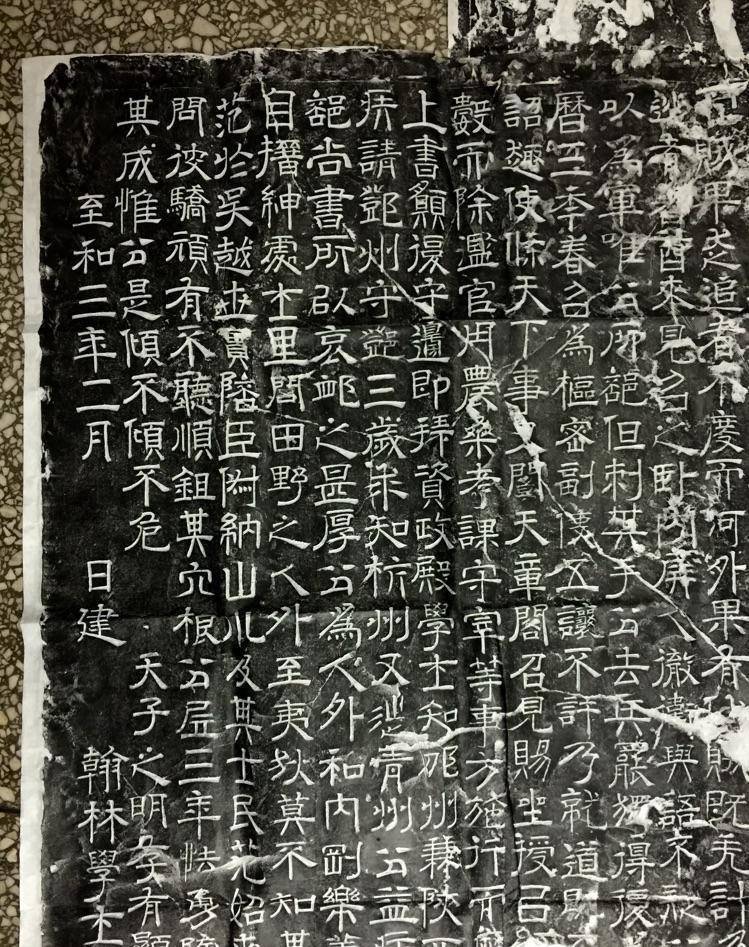 走追者不度而河外果有伏賊既失計
酋來見召之臥內屏人徹衛與語不疑
以為軍唯公所部但刺其手公去兵罷獨得復
曆三年春召為樞密副使五讓不許乃就道既
詔趣使條天下事又開天章閣召見賜坐授㠯
數而除濫官用農桑考課守宰等事方施行而
上書願復守邊即拜資政殿學士知邠州兼陝西
疾請鄧州守鄧三歲求知杭州又徙青州公益病
部尚書所以哀卹之甚厚公為人外和內剛樂善
自搢紳處士里閭田野之人外至夷狄莫不知其
范於吳越世實陪臣俶納山川及其士民范始來
問彼驕頑有不聽順鉏其穴根公居三年怯勇隳
其成惟公是傾不傾不危 天子之明存有顯
至和三年二月 日建 翰林學士